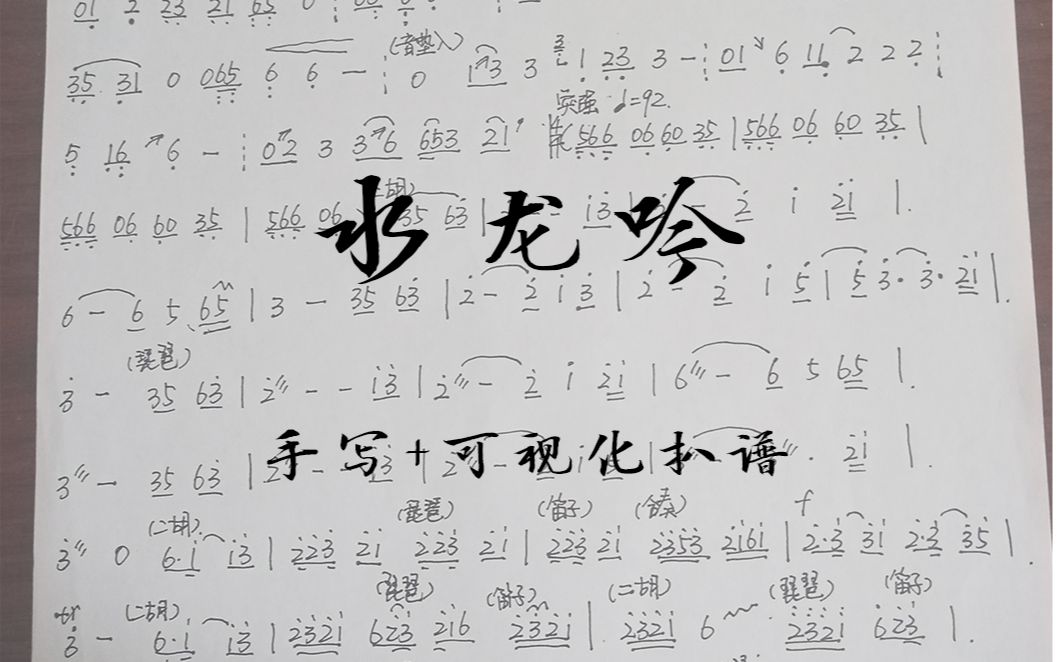 01 2 23 21 65 0
35 31 0 065 6 6 — 0 1 3 3 1 23 3 — 01 6 11 2 2 2
(音垫入)
突强 ♩=92.
5 16 6 — 02 3 3 6 653 21 566 06 60 35 | 566 06 60 35 |
566 06 60 35 | 566 06 35 63 | i3 | — 2 i 2i |
水龙吟
6 — 6 5 65 | 3 — 35 63 | 2 — 2 i 3 | 2 — 2 i 5 | 5 3· 3· 2i |
(琵琶)
3 — 35 63 | 2 — — i3 | 2 — 2 i 2i | 6 — 6 5 65 |
手写+可视化扒谱
3 — 35 63 | 2i |
(二胡) (琵琶) (笛子) (合奏) f
3 0 6·i i3 | 223 2i 223 2i | 223 2i 2353 2i6i | 2·3 3i 2·3 35 |
tr (二胡) (琵琶) (笛子) (二胡) (琵琶) (笛子)
3 — 6·i i3 | 232i 623 2i6 232i | 232i 6 232i 623 |